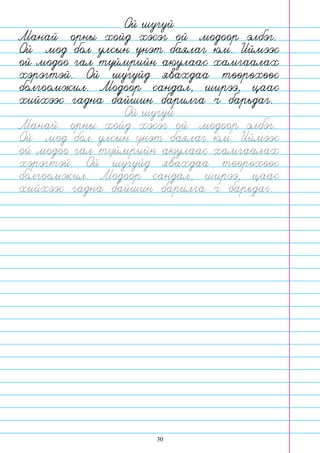 Ой шугуй
Манай орны хойд хэсэг ой модоор элбэг.
Ой мод бол улсын үнэт баялаг юм. Иймээс
ой модоо гал түймрийн аюулаас хамгаалах
хэрэгтэй. Ой шугуйд явахдаа төөрөхөөс
болгоомжил. Модоор сандал, ширээ, цаас
хийхээс гадна байшин барилга ч барьдаг.
Ой шугуй
Манай орны хойд хэсэг ой модоор элбэг.
Ой мод бол улсын үнэт баялаг юм. Иймээс
ой модоо гал түймрийн аюулаас хамгаалах
хэрэгтэй. Ой шугуйд явахдаа төөрөхөөс
болгоомжил. Модоор сандал, ширээ, цаас
хийхээс гадна байшин барилга ч барьдаг.
30